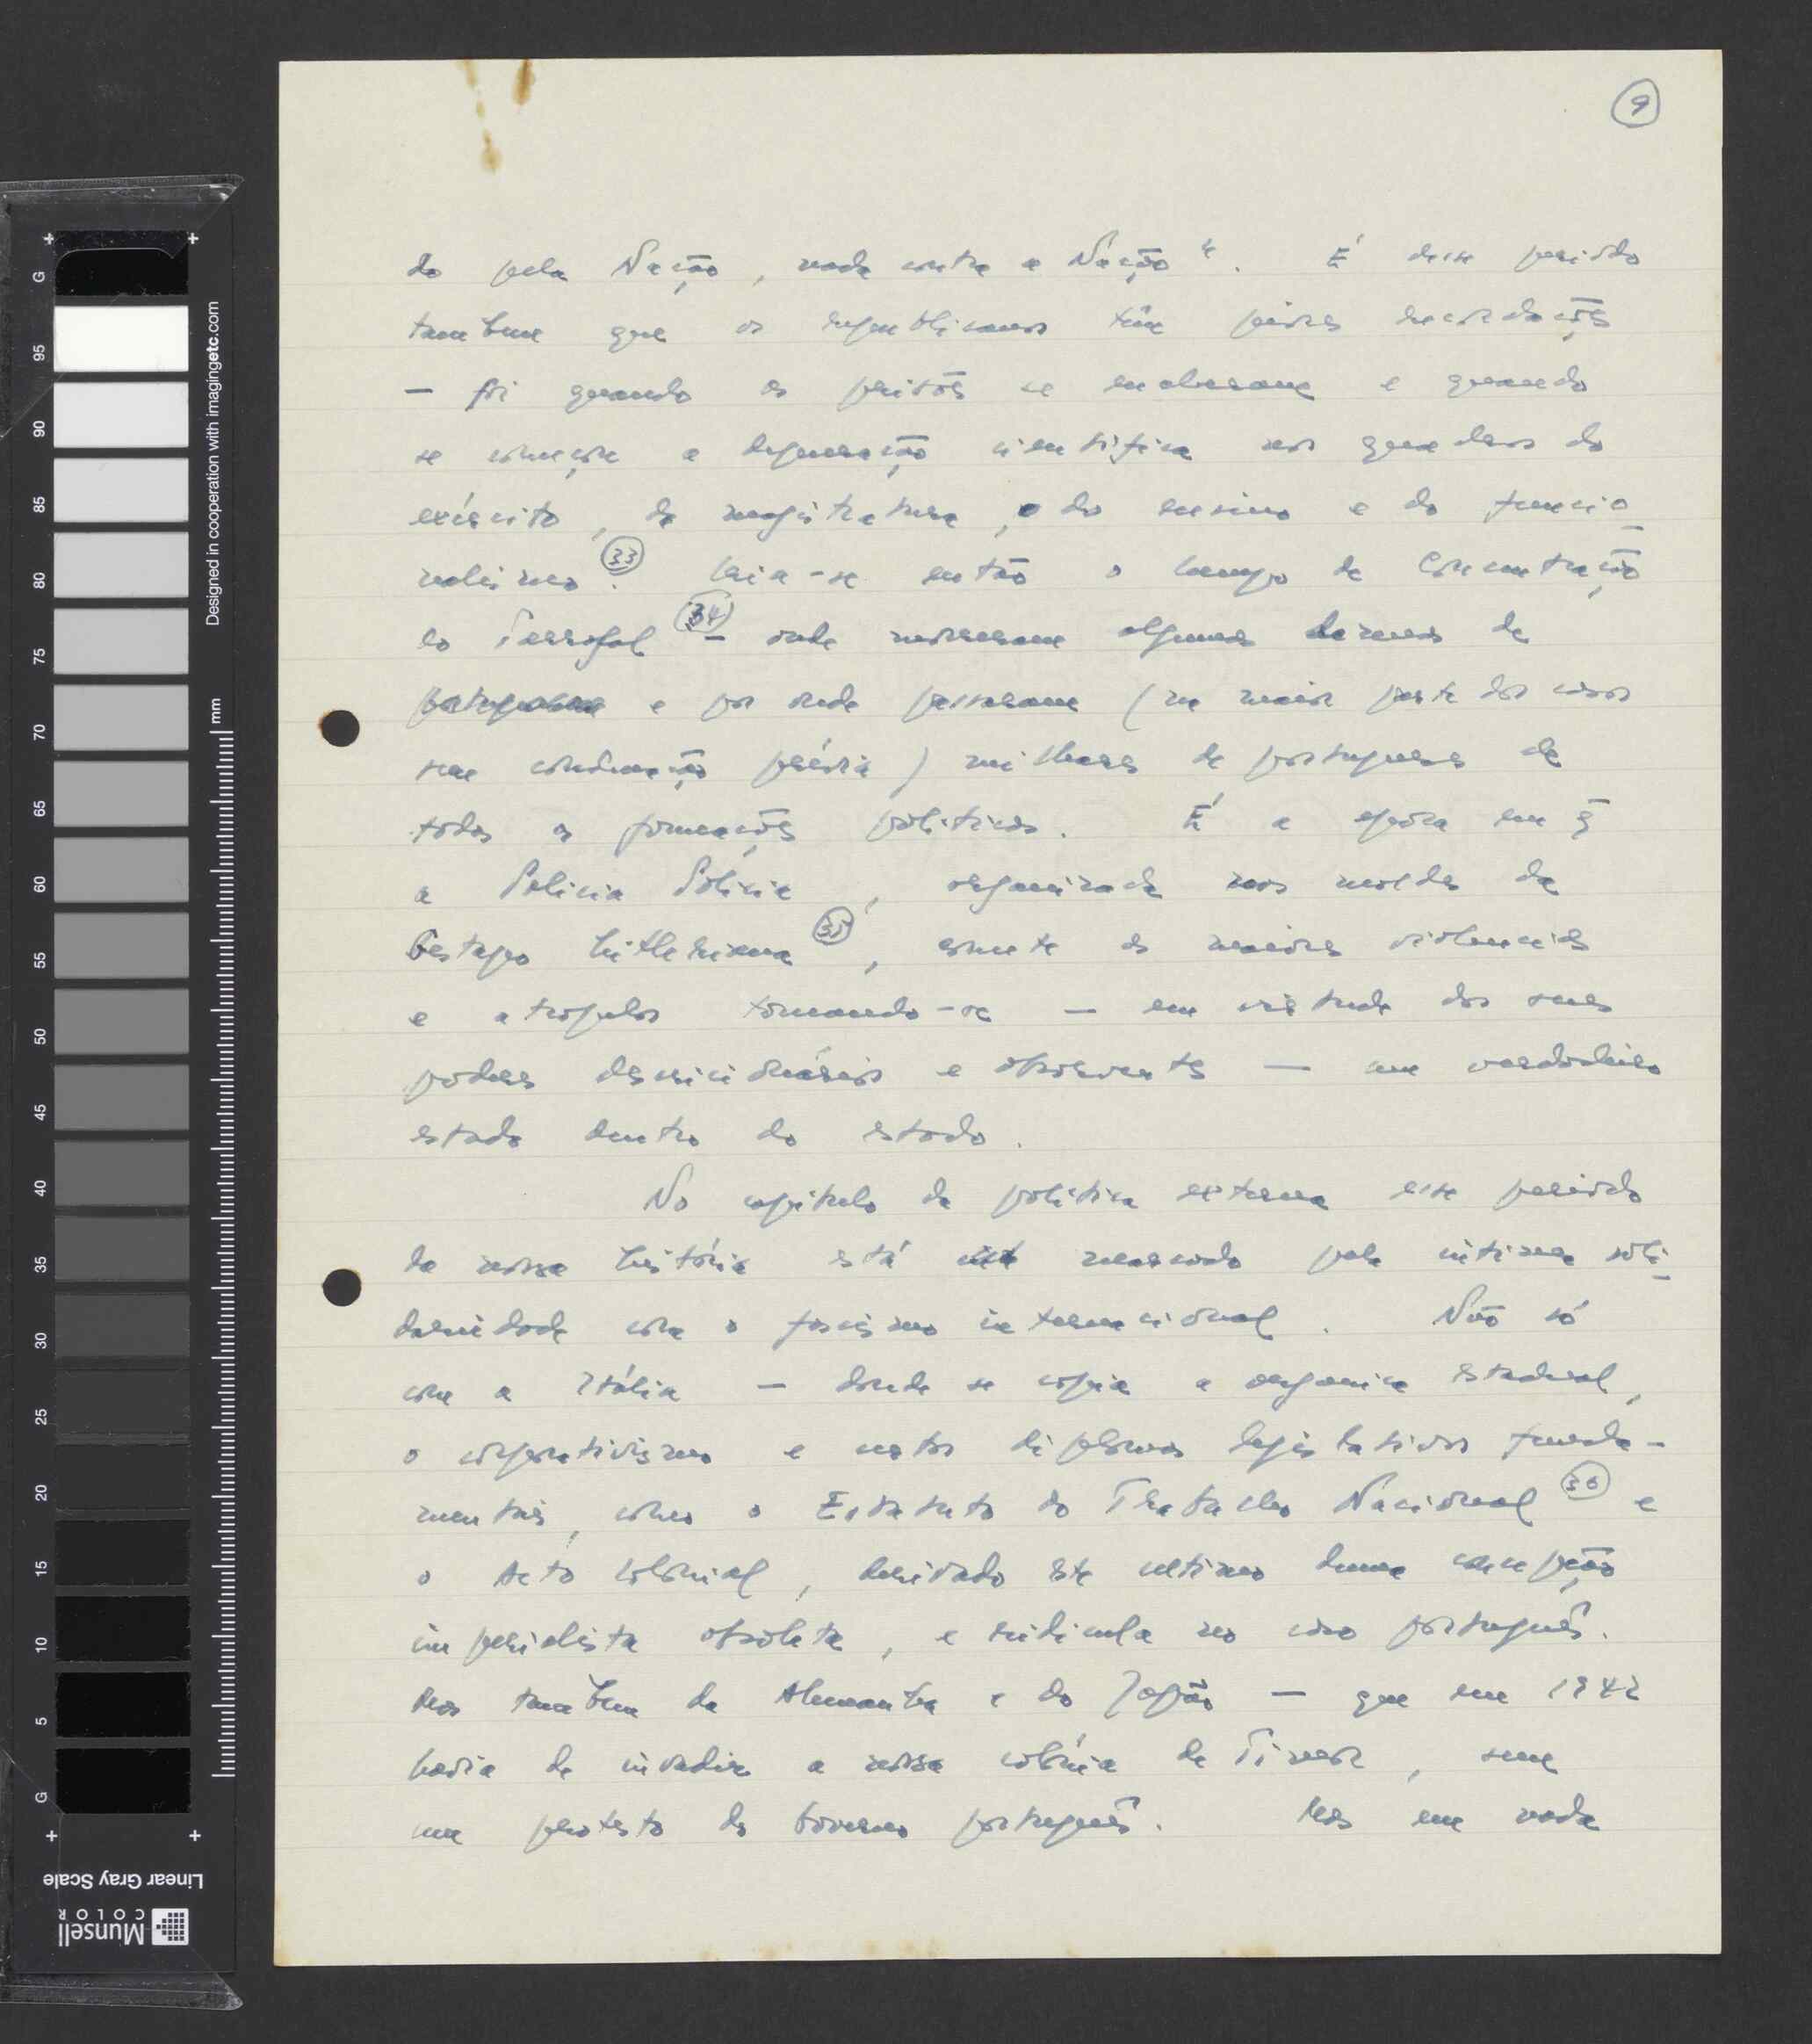 9
do pela Nação, nada contra a Nação". É desse periodo
tambem que os republicanos têm piores recordações
— foi quando as prisões se encheram e quando
se começou a depuração cientifica nos quadros do
exército, da magistratura, do ensino e do funcio-
nalismo (33). Cria-se então o Campo de Concentração
do Tarrafal (34) — onde morreram algumas dezenas de
portugueses e por onde passaram (na maior parte dos casos
sem condenação prévia) milhares de portugueses de
todas as formações politicas. É a epoca em q̄
a Policia Politica, organizada nos moldes da
Gestapo hitleriana (35), comete as maiores violencias
e atropelos tornando-se — em virtude dos seus
poderes discricionários e absorventes — um verdadeiro
estado dentro do estado.
No capitulo da politica externa esse periodo
da nossa história está marcado pela intima soli-
dariedade com o fascismo internacional. Não só
com a Itália — donde se copia a organica estadual,
o corporativismo e certos diplomas legislativos funda-
mentais, como o Estatuto do Trabalho Nacional (36) e
o Acto Colonial, derivado este ultimo duma concepção
imperialista obsoleta, e ridicula no caso português.
Mas tambem da Alemanha e do Japão — que em 1942
havia de invadir a nossa colónia de Timor, sem
um protesto do Governo português. Mas em nada
Designed in cooperation with imagingetc.com
mm
G
95
90
85
80
75
70
65
60
55
50
45
40
35
30
25
20
15
10
5
G
Linear Gray Scale
Munsell
COLOR